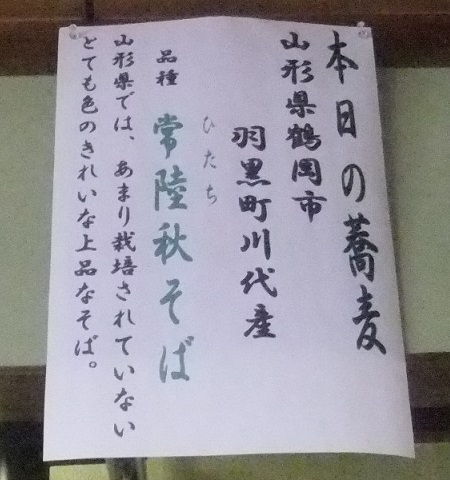 本日の蕎麦
山形県鶴岡市
羽黒町川代産
ひたち
品種 常陸秋そば
山形県では、あまり栽培されていない
とても色のきれいな上品なそば。